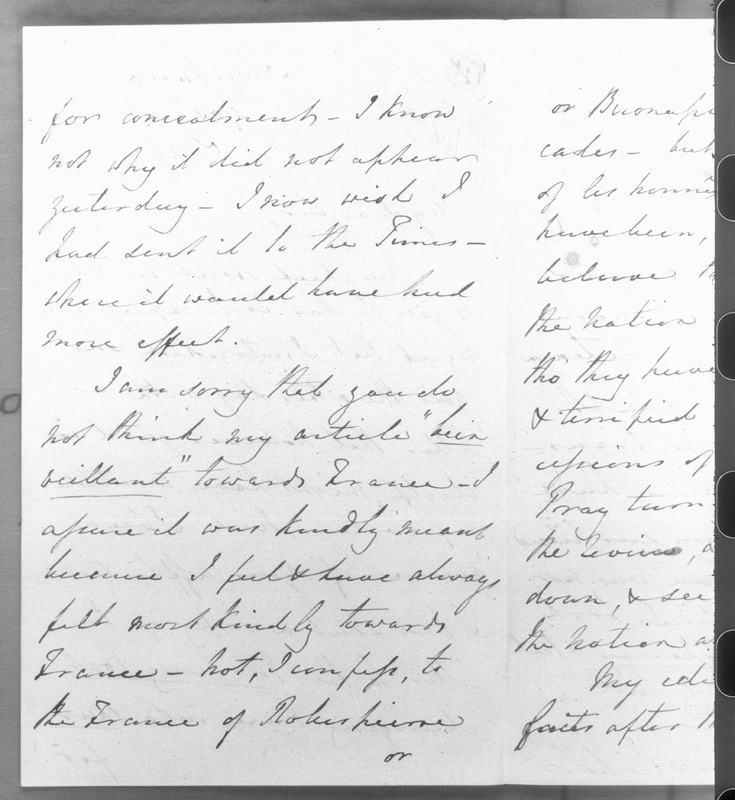 for concealment – I know
not why it did not appear
yesterday – I now wish I
had sent it to the Times –
where it would have had
more effect.
I am sorry that you do
not think my article "bien
veillant" towards France – I
assure it was kindly meant
because I feel & have always
felt most kindly towards
France – not, I confess, to
the France of Robespierre
or
or Buonap
cades – but
of les honnê
have been,
believe th
the nation
tho' they have
& terrified
essions of
Pray turn
the down, & see
the nation a
My ide
facts after th